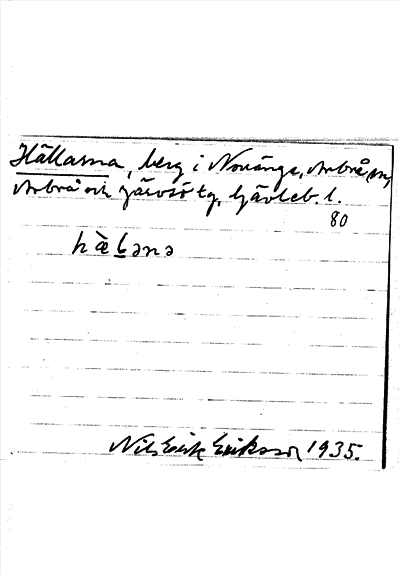 Hällarna, berg i Norränge, Arbrå sn,
Arbrå och Järvsö tg, Gävleb. l.
80
hæ̀ḷənə
Nils Erik Eriksson 1935.